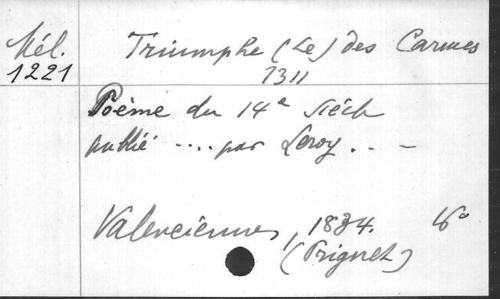 Mél.
1221
Triumphe (Le) des Carmes
1311
Poème du 14e siècle
publié .... par Leroy. . -
Valenciennes, 1834.
(Prignet)